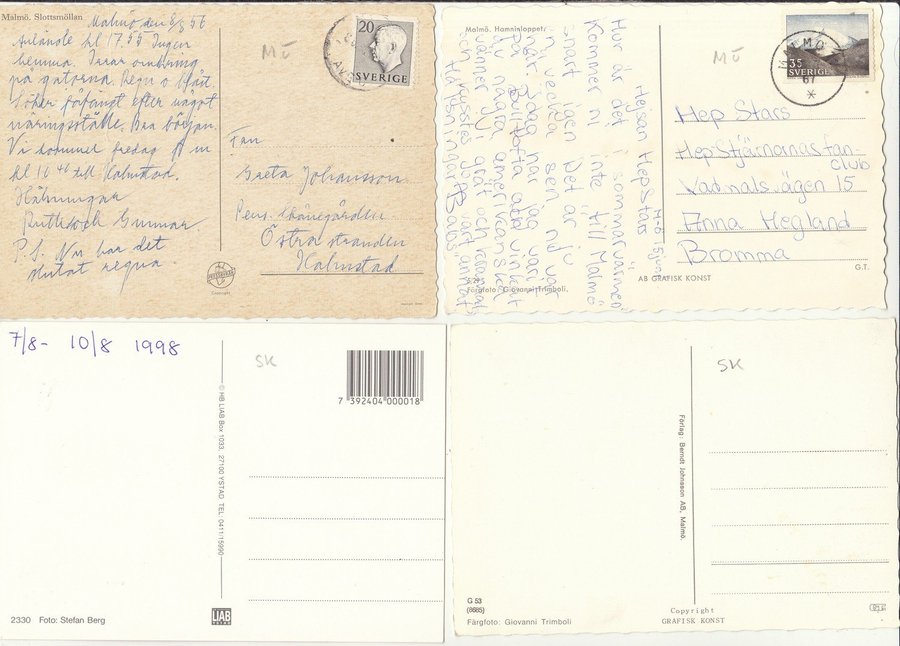 Malmö. Slottsmöllan
Malmö den 8/8 56
Anlände kl 17.55 Ingen
hemma. Irrar omkring
på gatorna. Regn o blåst.
Söker förfängt efter något
näringsställe. Bra början.
Vi kommer fredag fm
kl 10 40 till Halmstad.
Hälsningar
Ruth och Gunnar
P.S. Nu har det
slutat regna
MÖ
20
SVERIGE
Fru
Greta Johansson
Pens. Skånegården
Östra stranden
Halmstad
Copyright
Malmö. Hamninloppet.
M-ö 15 juni
Hejsan Hep Stars
Hur är det i sommarvärmen
Kommer ni inte till Malmö
snart igen. Det är ju
en vecka sen nu
i dag har jag varit
på Bulltofta och vinkat
några amerikanska
vänner. Vi grät och
Hälsningar "Babs"
Färgfoto: Giovanni Trimboli,
AB GRAFISK KONST
MÖ
35
SVERIGE
67
Hep Stars
Hep Stjärnornas fan-
club
Vadmalsvägen 15
Anna Hegland
Bromma
G.T.
7/8 - 10/8 1998
SK
7 392404 000018
© HB LIAB Box 1033. 27100 YSTAD TEL. 0411/15990
2330 Foto: Stefan Berg
LIAB
YSTAD
SK
Förlag: Berndt Johnsson AB, Malmö.
G 53
(8685)
Färgfoto: Giovanni Trimboli
Copyright
GRAFISK KONST